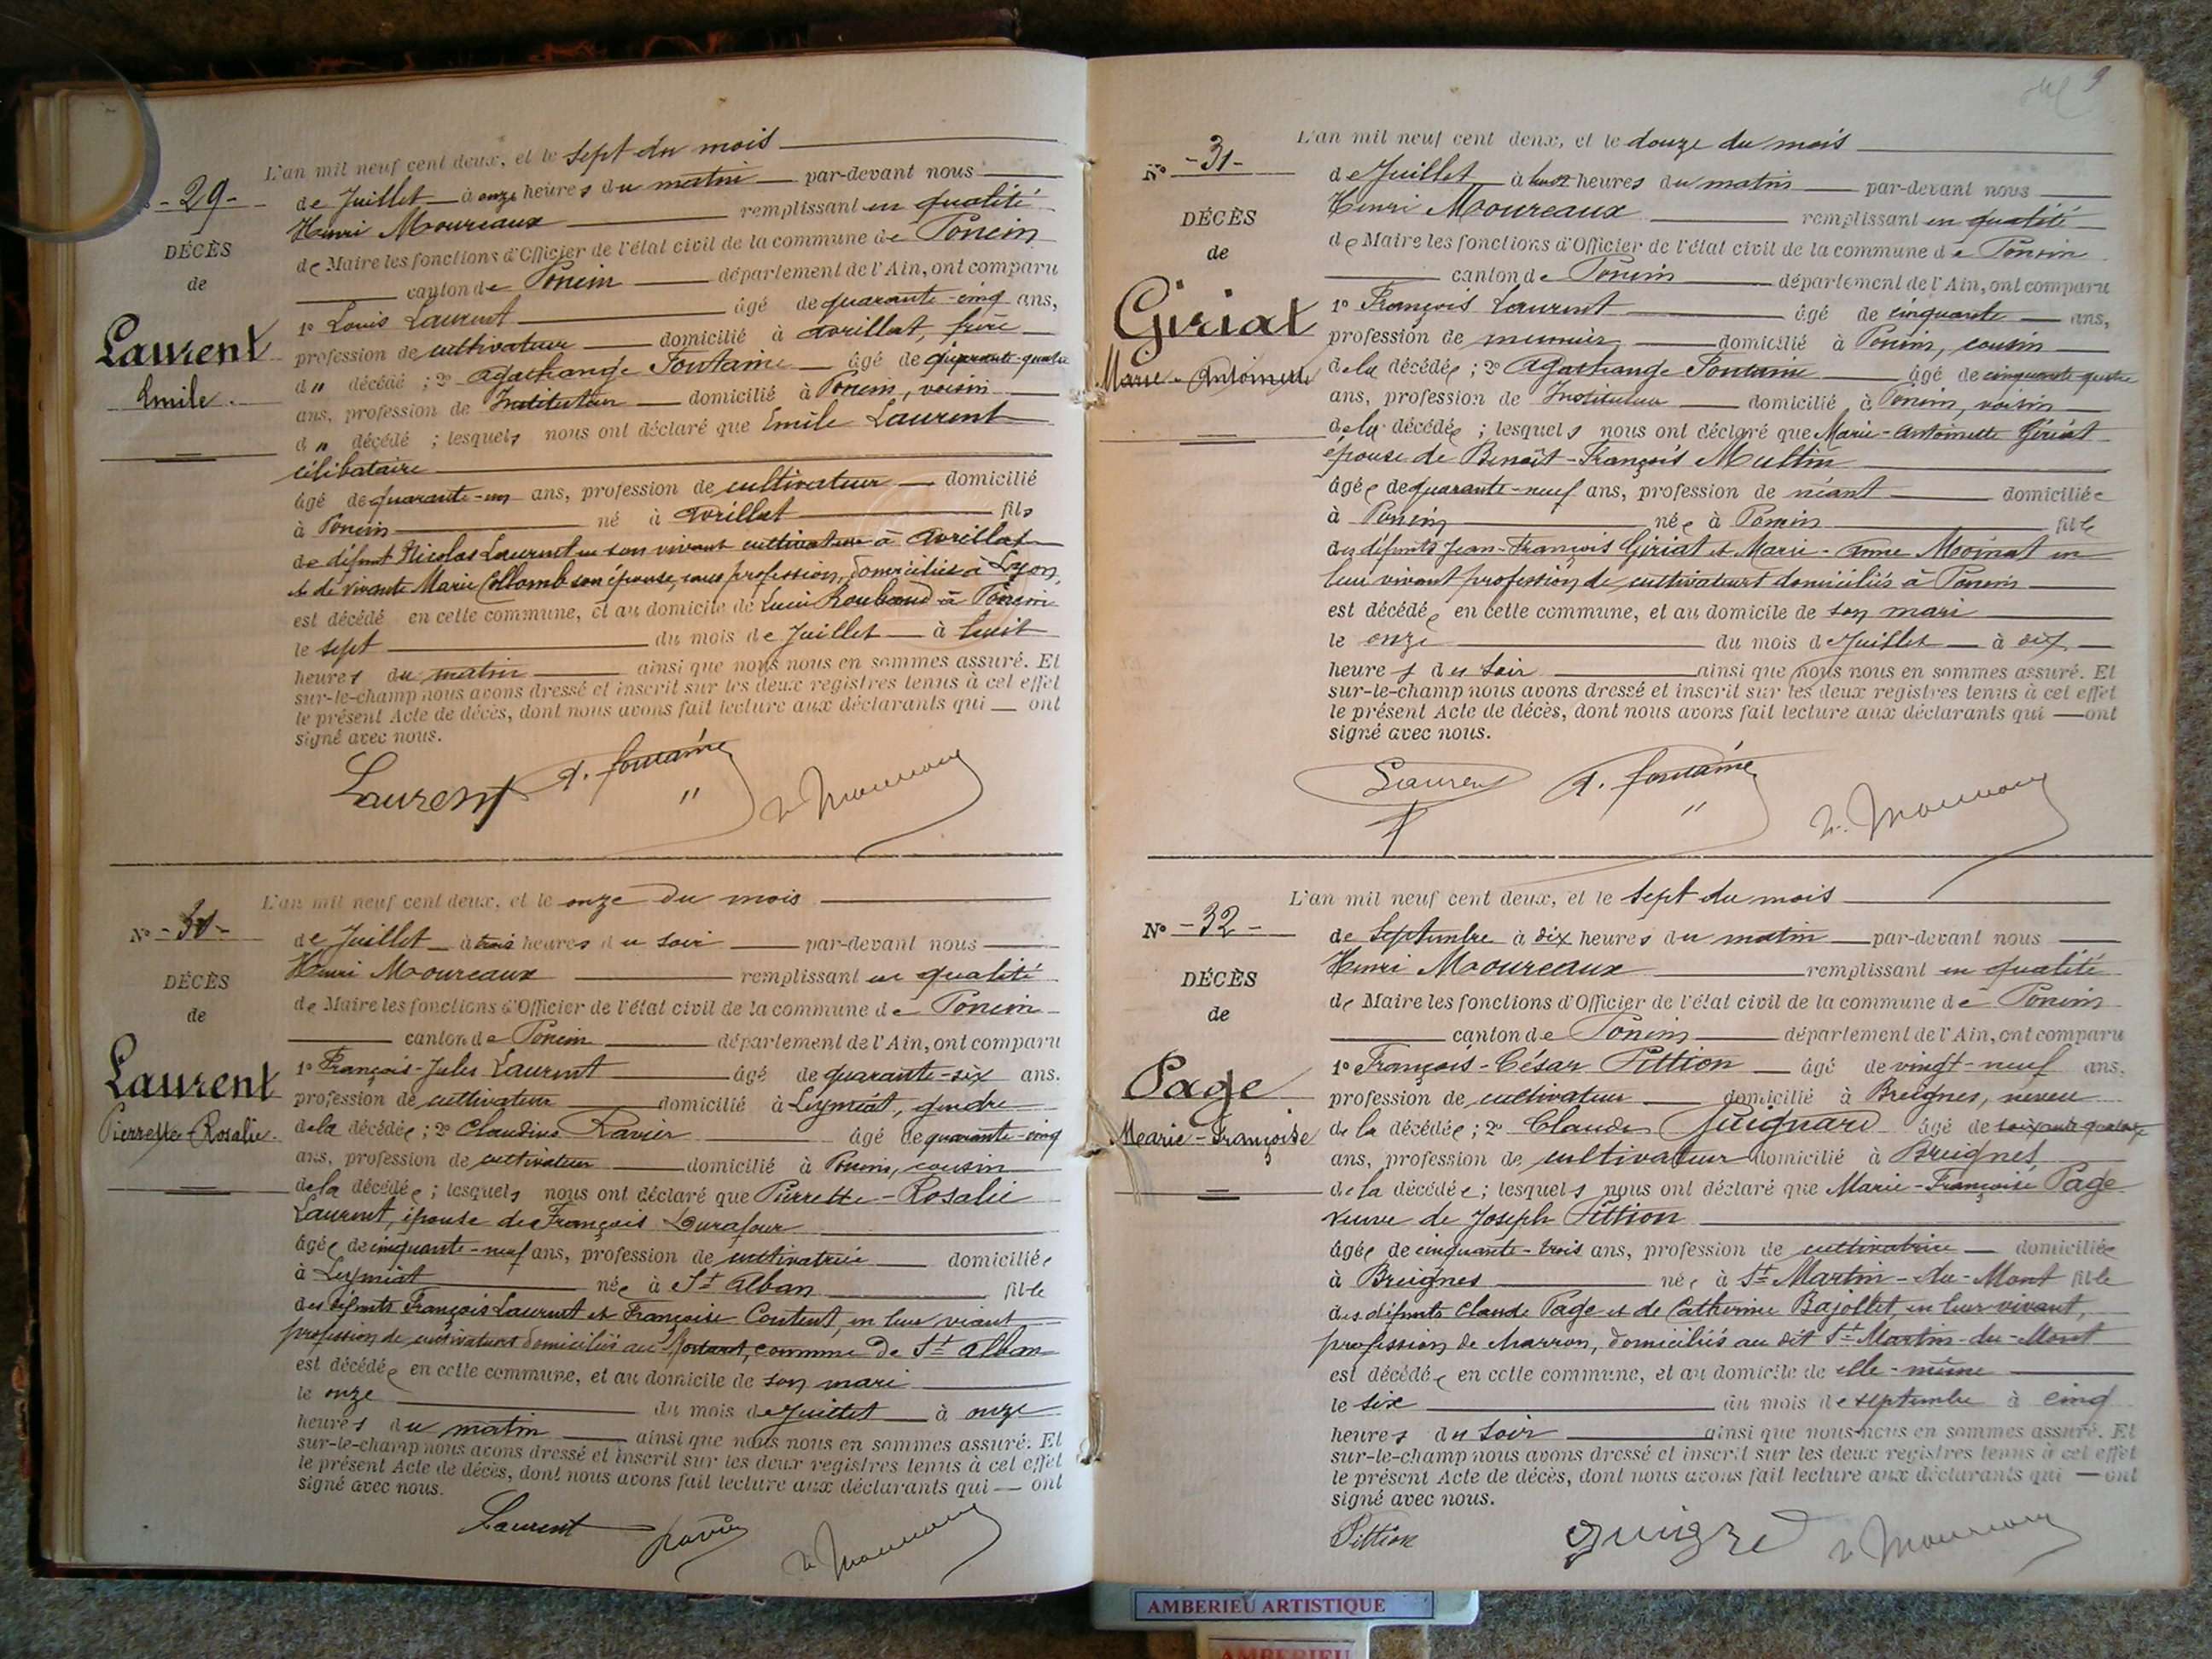 L'an mil neuf cent deux, et le sept du mois
- 29 -
de Juillet à onze heures du matin par-devant nous
Henri Moureaux remplissant en qualité
DÉCÈS
de Maire les fonctions d'Officier de l'état civil de la commune de Poncin
de
canton de Poncin département de l'Ain, ont comparu
Laurent
Emile.
1º Louis Laurent âgé de quarante-cinq ans,
profession de cultivateur domicilié à Avrillat, frère
d u décédé ; 2º Agathange Fontaine âgé de
ans, profession de Instituteur domicilié à Poncin, voisin
d u décédé ; lesquels nous ont déclaré que Emile Laurent
célibataire
âgé de quarante-un ans, profession de cultivateur domicilié
à Poncin né à Avrillat fils
de défunt Nicolas Laurent en son vivant cultivateur à Avrillat
et de vivante Marie Collomb son épouse, sans profession, domiciliée à Lyon,
est décédé en cette commune, et au domicile de Lucien Roubaud à Poncin
le sept du mois de Juillet à huit
heures du matin ainsi que nous nous en sommes assuré. Et
sur-le-champ nous avons dressé et inscrit sur les deux registres tenus à cet effet
le présent Acte de décès, dont nous avons fait lecture aux déclarants qui ont
signé avec nous.
Laurent A. Fontaine h. Moureaux
L'an mil neuf cent deux, et le onze du mois
Nº - 30 -
de Juillet à trois heures du soir par-devant nous
Henri Moureaux remplissant en qualité
DÉCÈS
de Maire les fonctions d'Officier de l'état civil de la commune de Poncin
de
canton de Poncin département de l'Ain, ont comparu
Laurent
Pierrette-Rosalie.
1º François-Jules Laurent âgé de quarante-six ans.
profession de cultivateur domicilié à Leymiat, gendre
de la décédée ; 2º Claudius Ravier âgé de quarante-cinq
ans, profession de cultivateur domicilié à Poncin, cousin
de la décédée ; lesquels nous ont déclaré que Pierrette-Rosalie
Laurent, épouse de François Durafour
âgée de cinquante-neuf ans, profession de cultivatrice domiciliée
à Leymiat née à St Alban fille
des défunts François Laurent et Françoise Content, en leur vivant
profession de cultivateurs domiciliés au Mortaret, commune de St Alban
est décédée en cette commune, et au domicile de son mari
le onze du mois de Juillet à onze
heures du matin ainsi que nous nous en sommes assuré. Et
sur-le-champ nous avons dressé et inscrit sur les deux registres tenus à cet effet
le présent Acte de décès, dont nous avons fait lecture aux déclarants qui ont
signé avec nous.
Laurent Ravier h. Moureaux
9
L'an mil neuf cent deux, et le douze du mois
Nº - 31 -
de Juillet à huit heures du matin par-devant nous
Henri Moureaux remplissant en qualité
DÉCÈS
de Maire les fonctions d'Officier de l'état civil de la commune de Poncin
de
canton de Poncin département de l'Ain, ont comparu
Giriat
Marie-Antoinette
1º François Laurent âgé de cinquante ans,
profession de meunier domicilié à Poncin, cousin
de la décédée ; 2º Agathange Fontaine âgé de cinquante-quatre
ans, profession de Instituteur domicilié à Poncin, voisin
de la décédée ; lesquels nous ont déclaré que Marie-Antoinette Giriat
épouse de Benoît-François Mullin
âgée de quarante-neuf ans, profession de néant domiciliée
à Poncin née à Poncin fille
des défunts Jean-François Giriat et Marie-Anne Moinat en
leur vivant profession de cultivateurs domiciliés à Poncin
est décédée en cette commune, et au domicile de son mari
le onze du mois de Juillet à dix
heures du soir ainsi que nous nous en sommes assuré. Et
sur-le-champ nous avons dressé et inscrit sur les deux registres tenus à cet effet
le présent Acte de décès, dont nous avons fait lecture aux déclarants qui ont
signé avec nous.
Laurent A. Fontaine h. Moureaux
L'an mil neuf cent deux, et le sept du mois
Nº - 32 -
de Septembre à dix heures du matin par-devant nous
Henri Moureaux remplissant en qualité
DÉCÈS
de Maire les fonctions d'Officier de l'état civil de la commune de Poncin
de
canton de Poncin département de l'Ain, ont comparu
Page
Marie-Françoise
1º François-César Pittion âgé de vingt-neuf ans.
profession de cultivateur domicilié à Breignes, neveu
de la décédée ; 2º Claude Guignard âgé de
ans, profession de cultivateur domicilié à Breignes
de la décédée ; lesquels nous ont déclaré que Marie-Françoise Page
veuve de Joseph Pittion
âgée de cinquante-trois ans, profession de cultivatrice domiciliée
à Breignes née à St Martin-du-Mont fille
des défunts Claude Page et de Catherine Bajollet, en leur vivant,
profession de Marron, domiciliés au dit St Martin-du-Mont
est décédée en cette commune, et au domicile de elle-même
le six du mois de septembre à cinq
heures du soir ainsi que nous nous en sommes assuré. Et
sur-le-champ nous avons dressé et inscrit sur les deux registres tenus à cet effet
le présent Acte de décès, dont nous avons fait lecture aux déclarants qui ont
signé avec nous.
Pittion h. Moureaux
AMBERIEU ARTISTIQUE
AMBERIEU